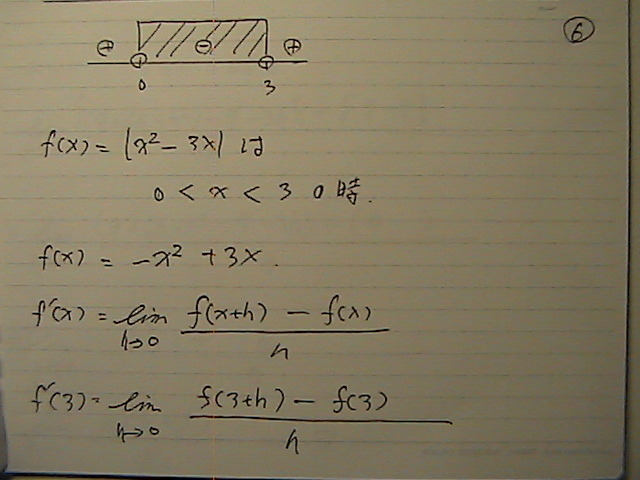 ⑥
⊕ ⊖ ⊕
0 3
f(x) = |x² - 3x| は
0 < x < 3 の時.
f(x) = -x² + 3x.
f'(x) = lim h→0 (f(x+h) - f(x)) / h
f'(3) = lim h→0 (f(3+h) - f(3)) / h